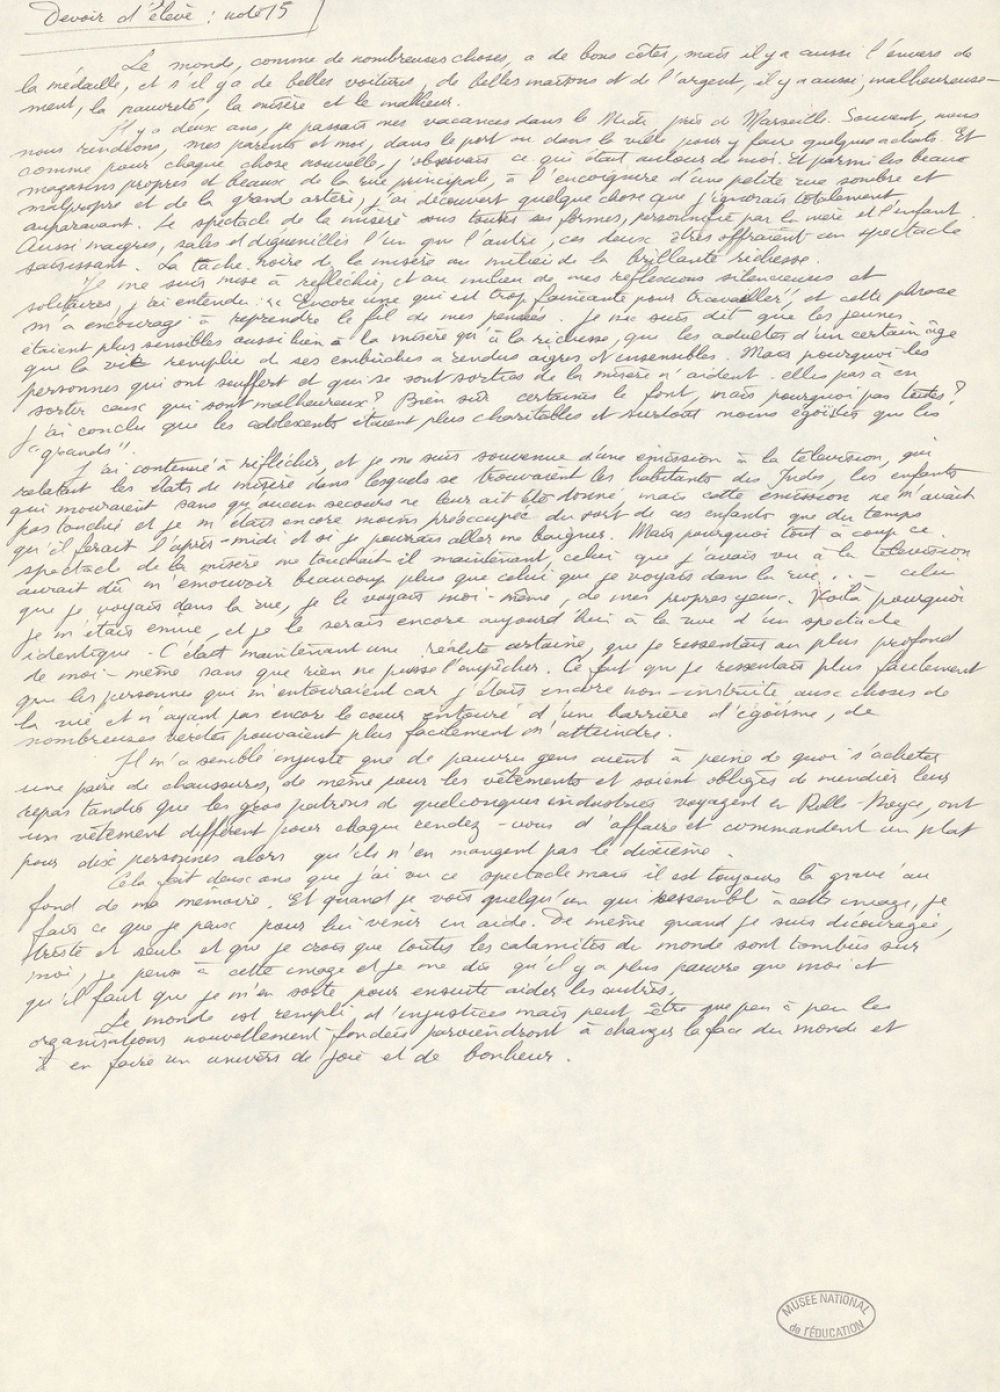 Devoir d'élève : note 15
Le monde, comme de nombreuses choses, a de bons côtés, mais il y a aussi l'envers de
la médaille, et s'il y a de belles voitures, de belles maisons et de l'argent, il y a aussi, malheureuse-
ment, la pauvreté, la misère et le malheur.
Il y a deux ans, je passais mes vacances dans le Midi près de Marseille. Souvent, nous
nous rendions, mes parents et moi, dans le port ou dans la ville pour y faire quelques achats. Et
comme pour chaque chose nouvelle, j'observais ce qui était autour de moi. Et parmi les beaux
magasins propres et beaux de la rue principal, à l'encoignure d'une petite rue sombre et
malpropre et de la grande artère, j'ai découvert quelque chose que j'ignorais totalement
auparavant. Le spectacle de la misère sous toutes ses formes, personnifié par la mère et l'enfant.
Aussi maigres, sales et diguenillés l'un que l'autre, ces deux êtres offraient un spectacle
saisissant. La tache noire de la misère au milieu de la brillante richesse.
Je me suis mise à réfléchir, et au milieu de mes réflexions silencieuses et
solitaires, j'ai entendu : "Encore une qui est trop fainéante pour travailler", et cette phrase
m'a encouragé à reprendre le fil de mes pensées. Je me suis dit que les jeunes
étaient plus sensibles aussi bien à la misère qu'à la richesse, que les adultes d'un certain âge
que la vie remplie de ses embûches a rendus aigres et insensibles. Mais pourquoi les
personnes qui ont souffert et qui se sont sorties de la misère n'aident-elles pas à en
sortir ceux qui sont malheureux ? Bien sûr certaines le font, mais pourquoi pas toutes ?
J'ai conclu que les adolescents étaient plus charitables et surtout moins égoïstes que les
"grands".
J'ai continué à réfléchir, et je me suis souvenue d'une émission à la télévision, qui
relatait les états de misère dans lesquels se trouvaient les habitants des Indes, les enfants
qui mouraient sans qu'aucun secours ne leur ait été donné, mais cette émission ne m'avait
pas touchée et je m'étais encore moins préoccupée du sort de ces enfants que du temps
qu'il ferait l'après-midi et si je pourrais aller me baigner. Mais pourquoi tout à coup ce
spectacle de la misère me touchait-il maintenant, celui que j'avais vu à la télévision
aurait dû m'émouvoir beaucoup plus que celui que je voyais dans la rue ... - celui
que je voyais dans la rue, je le voyais moi-même, de mes propres yeux. Voilà pourquoi
je m'étais émue, et je le serais encore aujourd'hui à la vue d'un spectacle
identique. C'était maintenant une réalité certaine, que je ressentais au plus profond
de moi-même sans que rien ne puisse l'empêcher. Ce fait que je ressentais plus facilement
que les personnes qui m'entouraient car j'étais encore non-instruite aux choses de
la vie et n'ayant pas encore le cœur entouré d'une barrière d'égoïsme, de
nombreuses vérités pouvaient plus facilement m'atteindre.
Il m'a semblé injuste que de pauvres gens aient à peine de quoi s'acheter
une paire de chaussures, de même pour les vêtements et soient obligés de mendier leur
repas tandis que les gros patrons de quelconques industries voyagent en Rolls-Royce, ont
un vêtement différent pour chaque rendez-vous d'affaire et commandent un plat
pour dix personnes alors qu'ils n'en mangent pas le dixième.
Cela fait deux ans que j'ai vu ce spectacle mais il est toujours là gravé au
fond de ma mémoire. Et quand je vois quelqu'un qui ressemble à cette image, je
fais ce que je peux pour lui venir en aide. De même quand je suis découragée,
triste et seule et que je crois que toutes les calamités du monde sont tombées sur
moi, je pense à cette image et je me dis qu'il y a plus pauvre que moi et
qu'il faut que je m'en sorte pour ensuite aider les autres.
Le monde est rempli d'injustices mais peut être que peu à peu les
organisations nouvellement fondées parviendront à changer la face du monde et
à en faire un univers de joie et de bonheur.
MUSEE NATIONAL
de l'ÉDUCATION